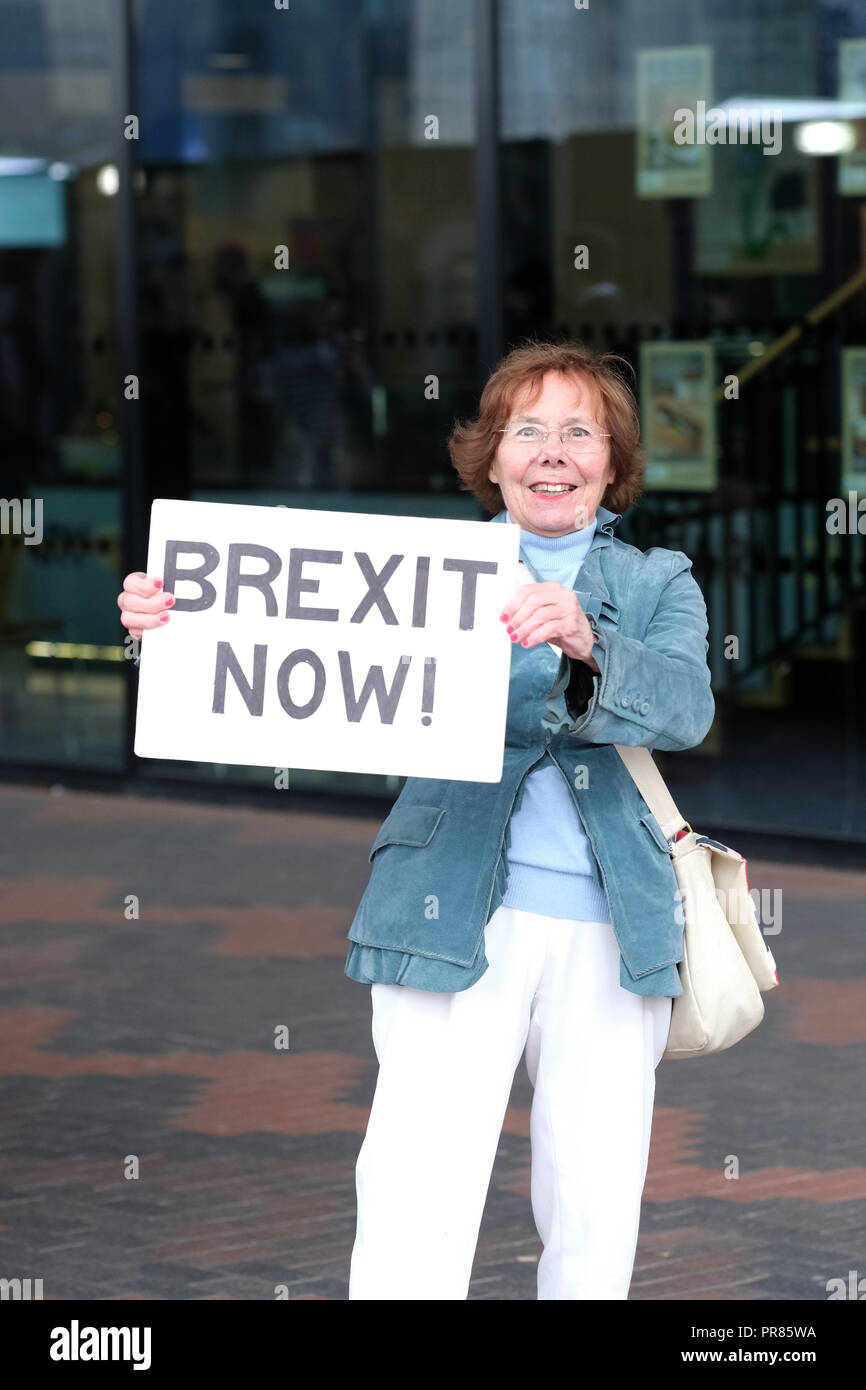 BREXIT
NOW!
alamy
Image ID: PR85WA
www.alamy.com